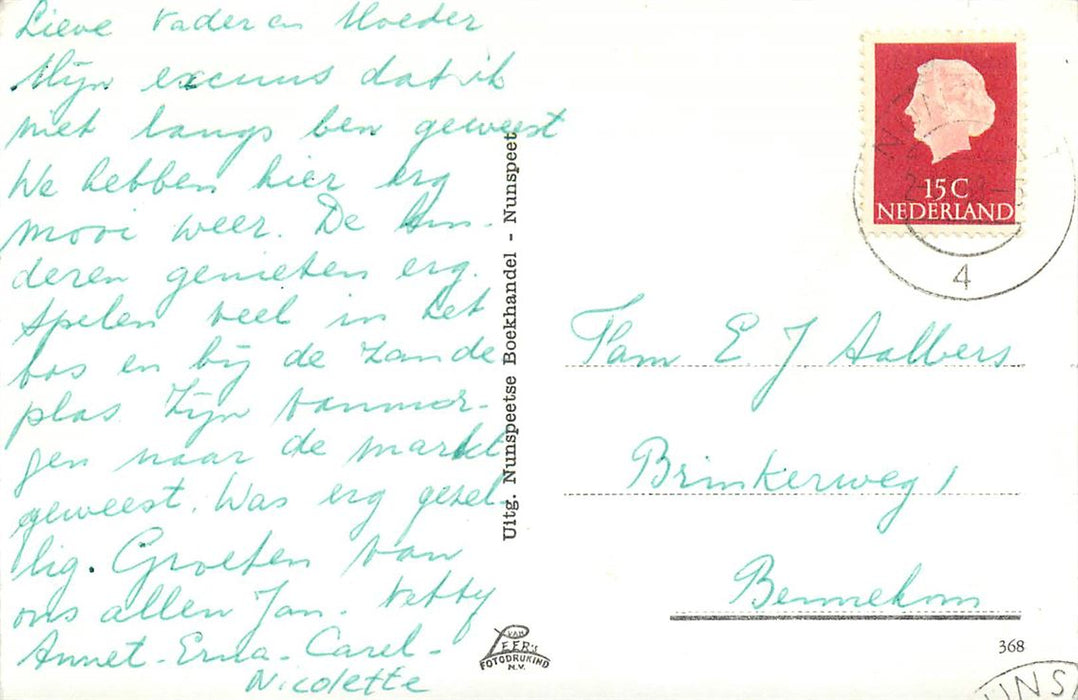 Lieve Vader en Moeder
Mijn excuus dat ik
niet langs ben geweest
We hebben hier erg
mooi weer. De kin-
deren genieten erg.
Spelen veel in het
bos en bij de Zande
plas Zijn vanmor-
gen naar de markt
geweest. Was erg gezel-
lig. Groeten van
ons allen Jan - Netty
Annet - Erna - Carel -
Nicolette
Uitg. Nunspeetse Boekhandel - Nunspeet
VAN
LEER'S
FOTODRUKIND
N.V.
15 C
NEDERLAND
4
Fam E J Aalbers
Brinkerweg 1
Bennekom
368
UNS